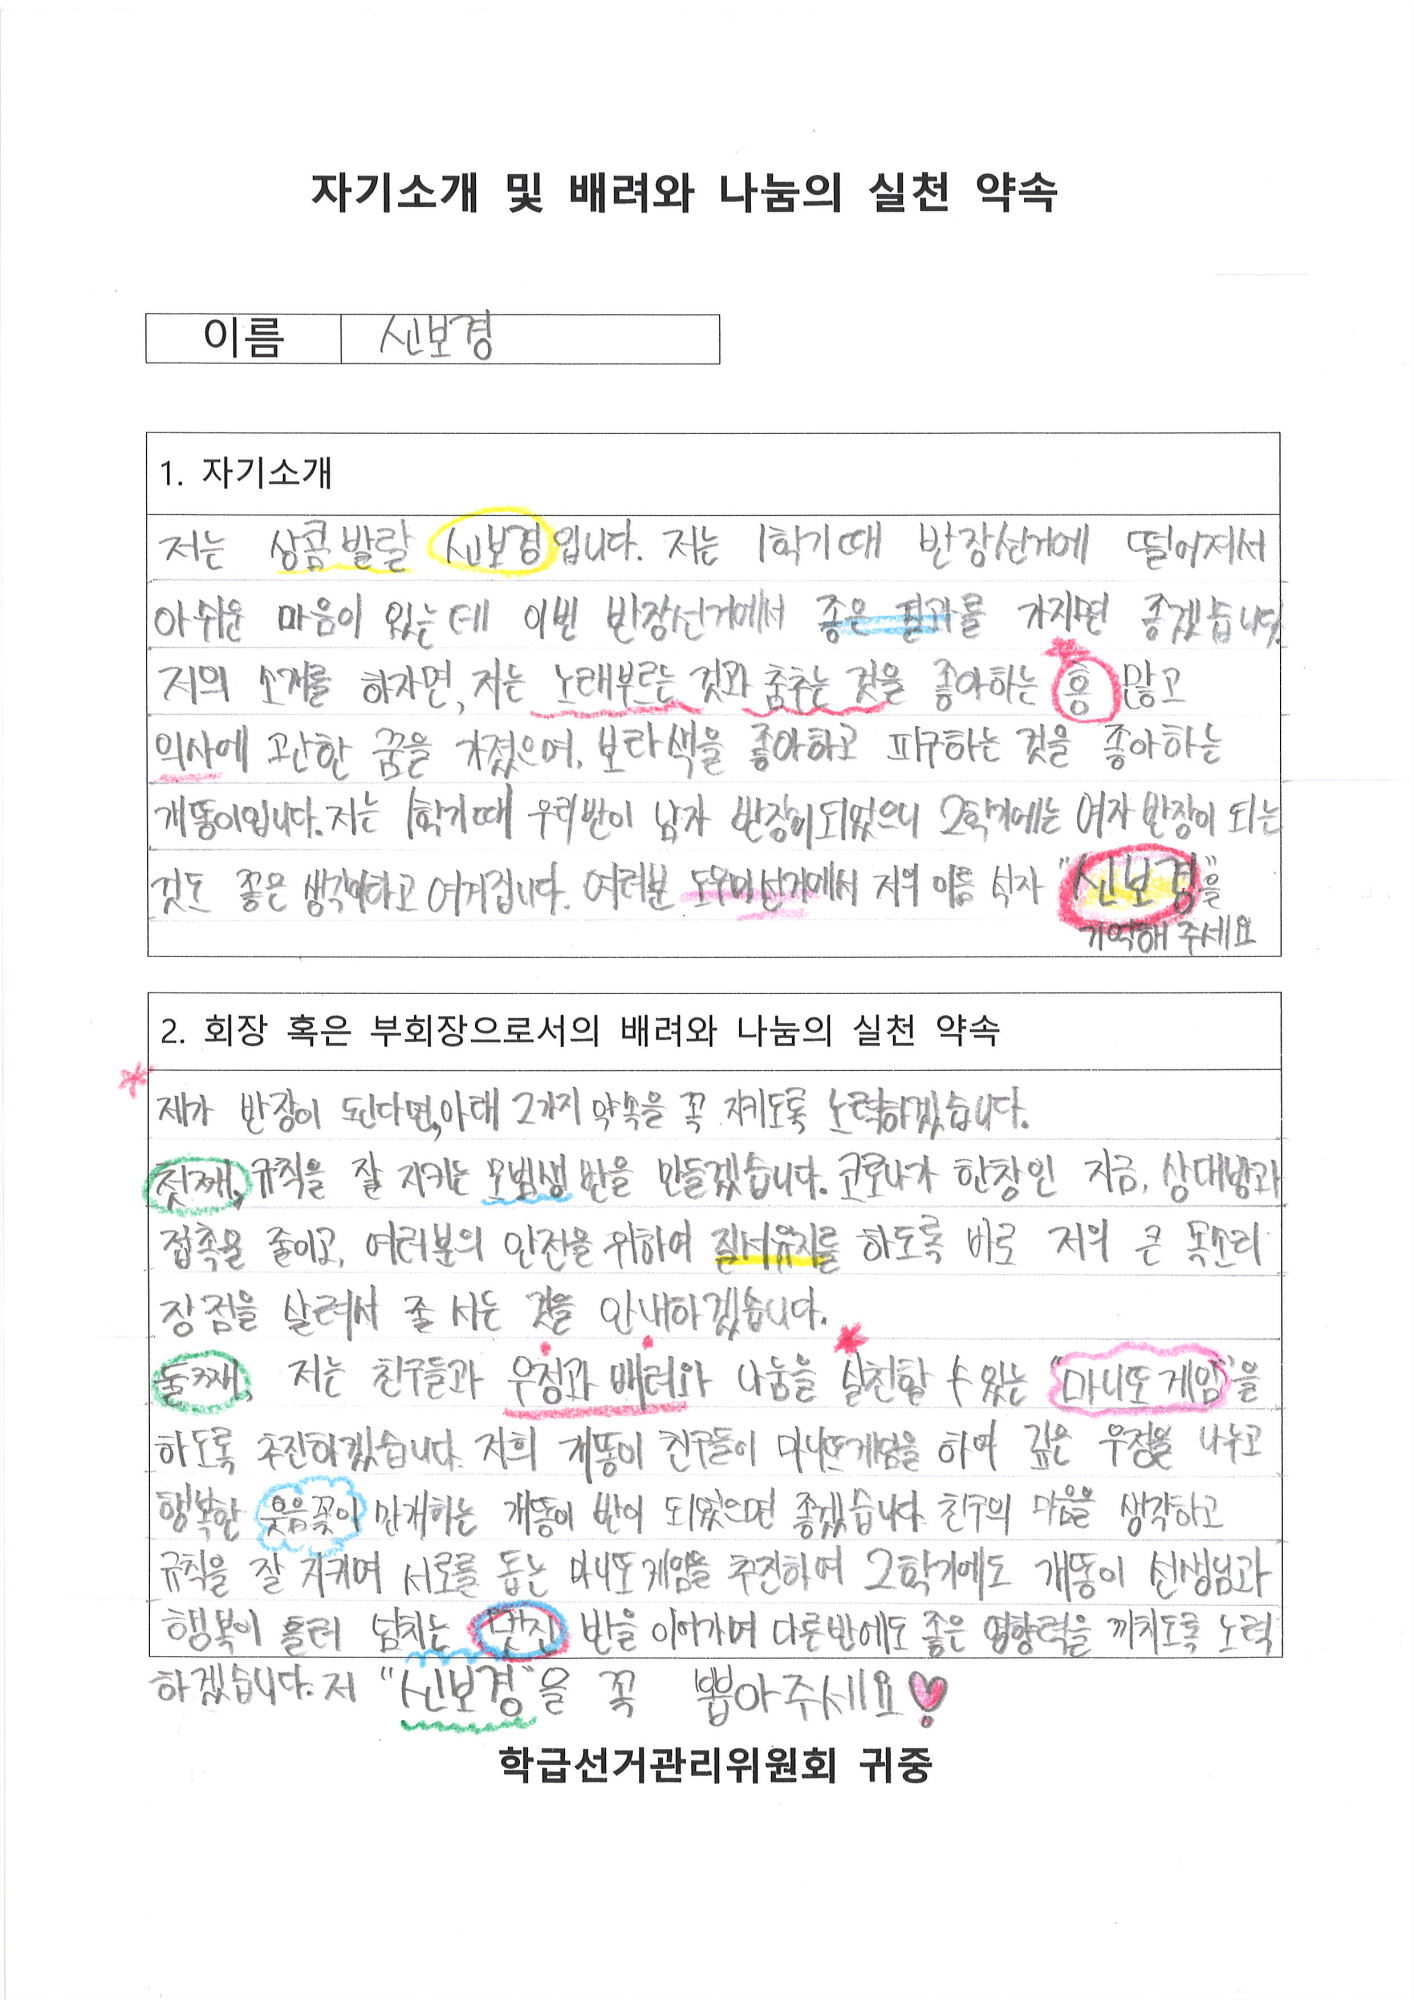 자기소개 및 배려와 나눔의 실천 약속
이름 신보경
1. 자기소개
저는 상콤발랄 신보경입니다. 저는 1학기때 반장선거에 떨어져서
아쉬운 마음이 있는데 이번 반장선거에서 좋은 결과를 가지면 좋겠습니다.
저의 소개를 하자면, 저는 노래부르는 것과 춤추는 것을 좋아하는 흥 많고
의사에 관한 꿈을 가졌으며, 보라색을 좋아하고 피구하는 것을 좋아하는
개똥이입니다. 저는 1학기때 우리반이 남자 반장이되었으니 2학기에는 여자 반장이 되는
것도 좋은 생각이라고 여겨집니다. 여러분 도우미선거에서 저의 이름 석자 "신보경"을
기억해 주세요
2. 회장 혹은 부회장으로서의 배려와 나눔의 실천 약속
제가 반장이 된다면, 아래 2가지 약속을 꼭 지키도록 노력하겠습니다.
첫째, 규칙을 잘 지키는 모범생 반을 만들겠습니다. 코로나가 한창인 지금, 상대방과
접촉을 줄이고, 여러분의 안전을 위하여 질서유지를 하도록 바로 저의 큰 목소리
장점을 살려서 줄 서는 것을 안내하겠습니다.
둘째, 저는 친구들과 우정과 배려와 나눔을 실천할 수 있는 "마니또게임"을
하도록 추진하겠습니다. 저희 개똥이 친구들이 마니또게임을 하여 깊은 우정을 나누고
행복한 웃음꽃이 만개하는 개똥이 반이 되었으면 좋겠습니다. 친구의 마음을 생각하고
규칙을 잘 지키며 서로를 돕는 마니또게임을 추진하여 2학기에도 개똥이 선생님과
행복이 흘러 넘치는 멋진 반을 이어가며 다른반에도 좋은 영향력을 끼치도록 노력
하겠습니다. 저 "신보경"을 꼭 뽑아주세요
학급선거관리위원회 귀중